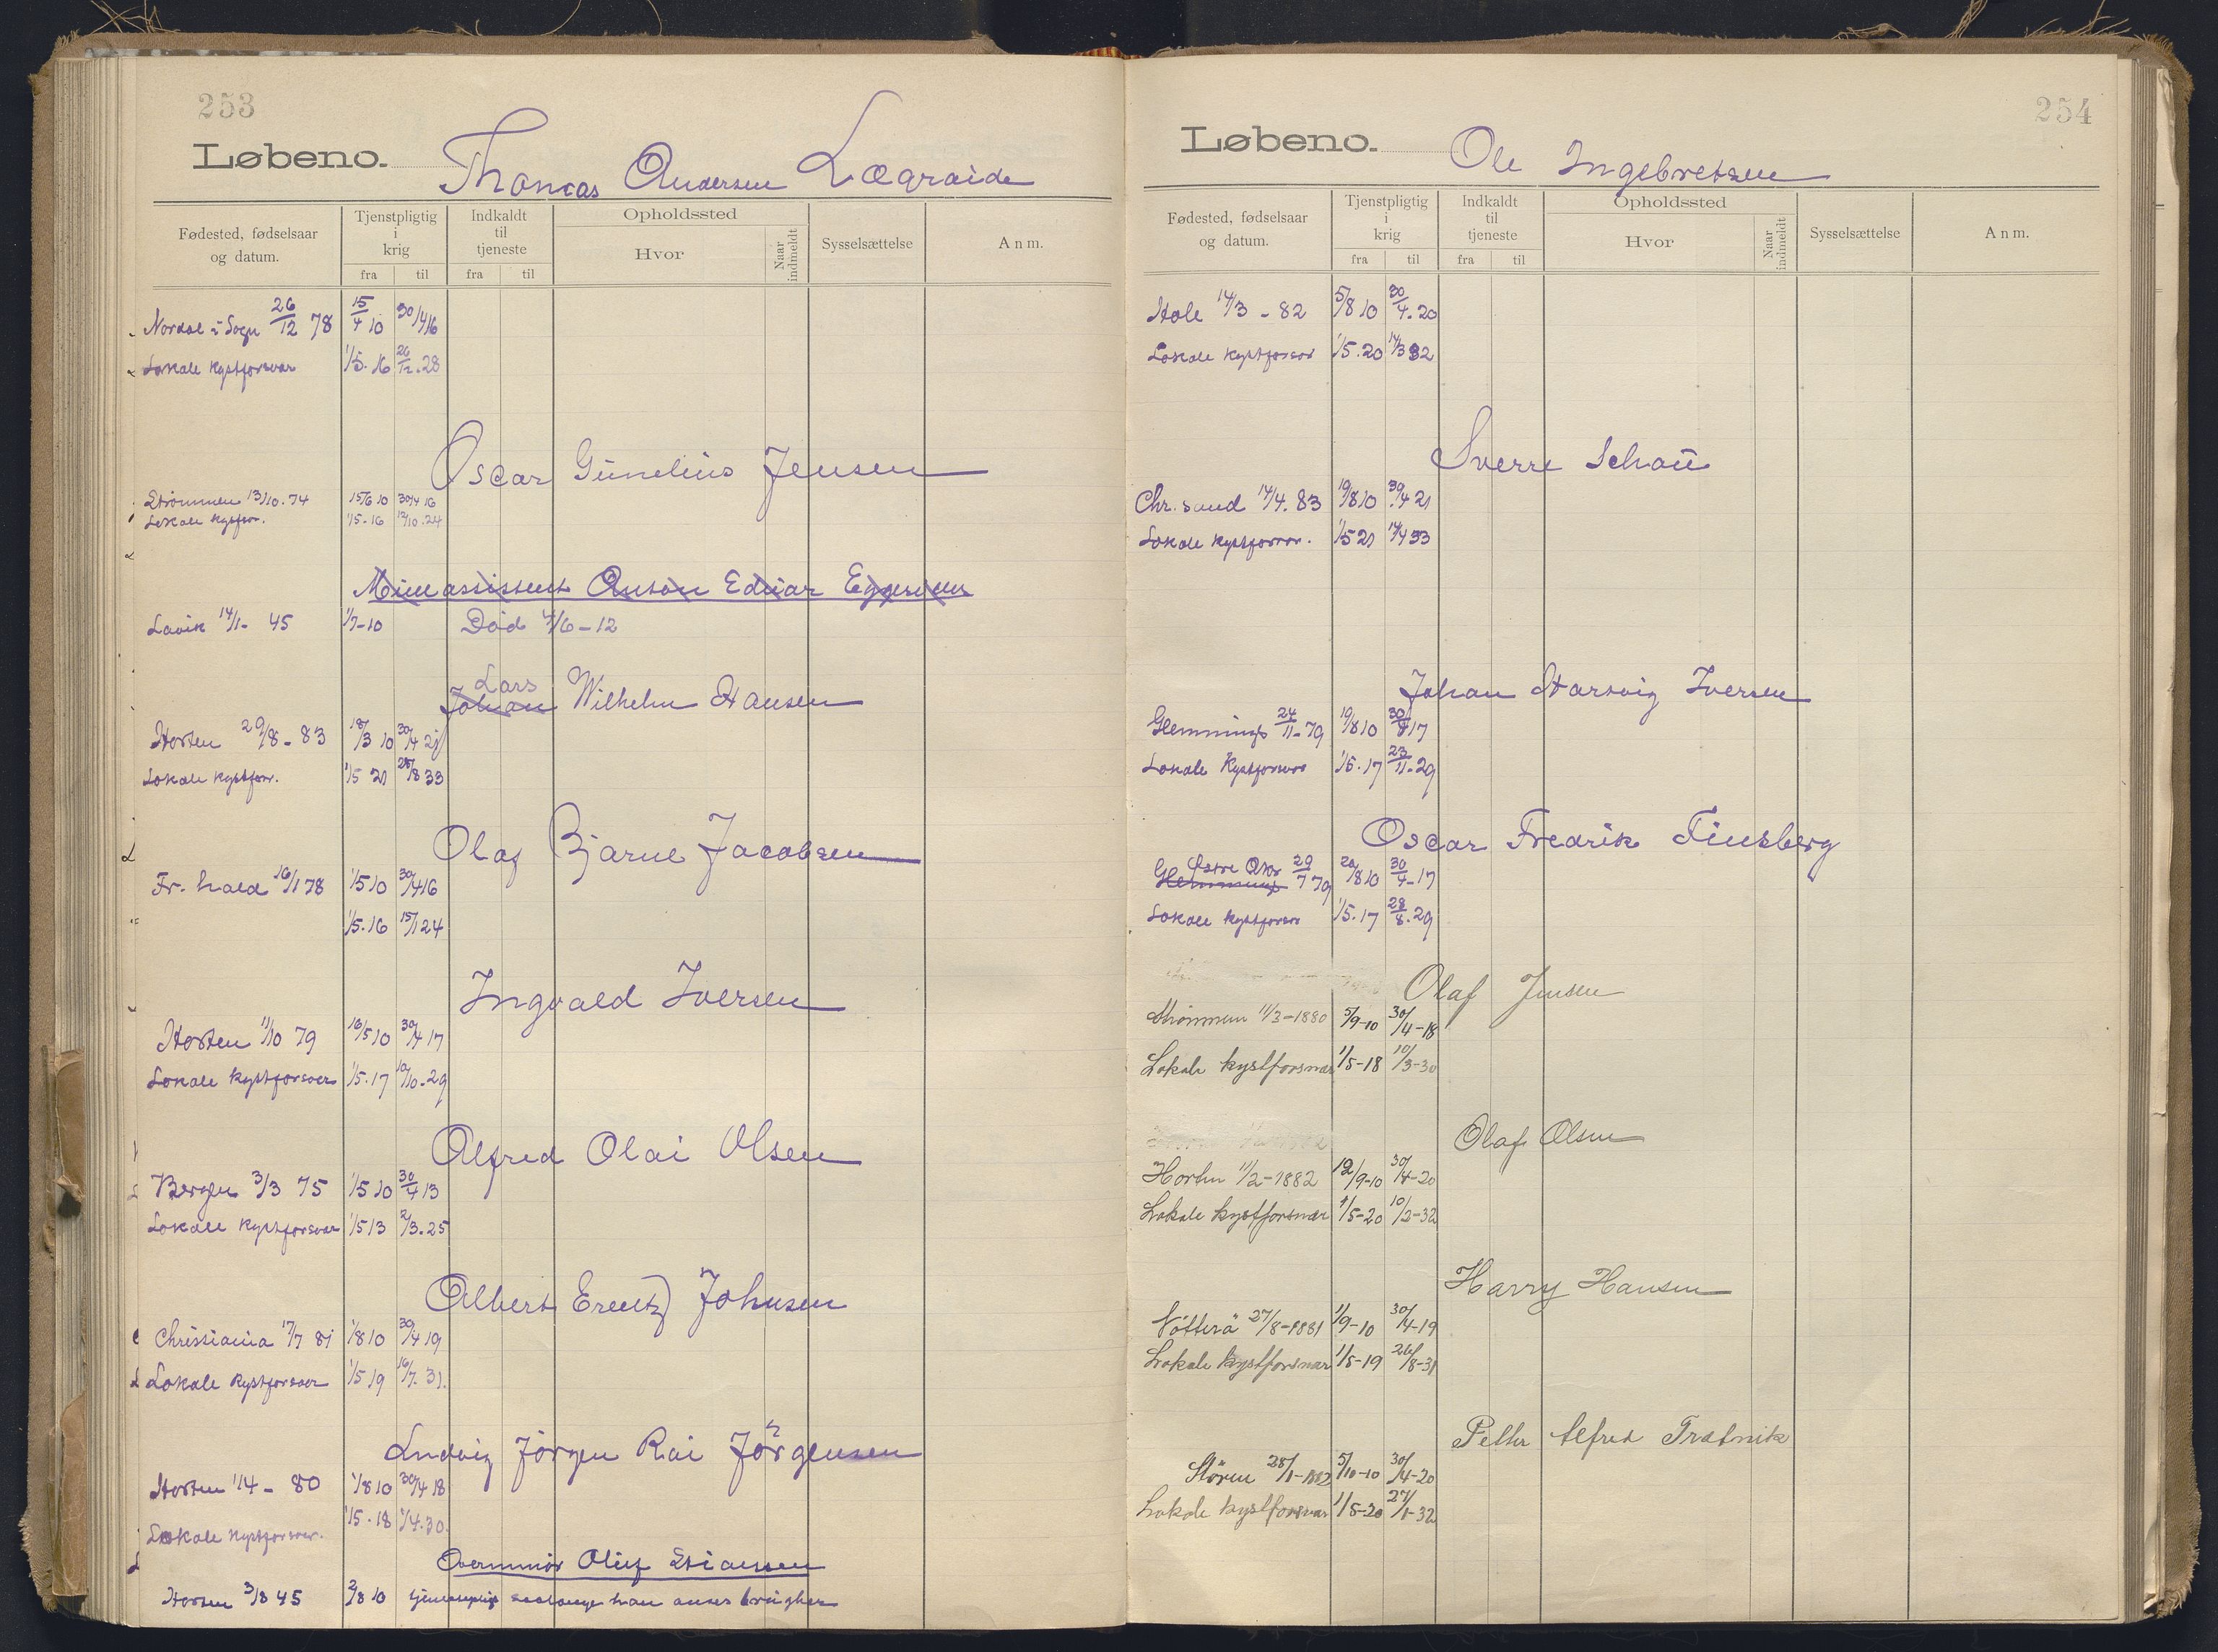 253
Løbeno. Thomas Andersen Lægreide
Fødested, fødselsaar og datum.
Tjenstpligtig i krig
fra til
Indkaldt til tjeneste
fra til
Opholdssted
Hvor
Naar indmeldt
Sysselsættelse
Anm.
26/12 78 15/4 10 30/4 16
Lokale kystforsvar 1/5.16 26/12.28
Oscar Jensen
Strømmen 13/10.74 15/6 10 30/4 16
Lokale kystfor. 1/5-16 12/10.24
Mineassistent Anton Edvar
Lavik 14/1- 45 1/7-10 Død 4/6-12
Lars
Johan Wilhelm Hansen
Horten 29/8-83 18/3 10 30/4 21
Lokale kystforr. 1/5 21 28/8 33
Olaf Bjarne Jacobsen
Fr. hald 16/1 78 1/5 10 30/4 16
1/5.16 15/1 24
Ingvald Iversen
Horten 11/10 79 16/5 10 30/4 17
Lokale kystforsvar 1/5.17 10/10.29
Alfred Olai Olsen
Bergen 3/3 75 1/5 10 30/4 13
Lokale kystforsvar 1/5 13 2/3.25
Albert Johnsen
Christiania 17/7 81 1/8 10 30/4 19
Lokale kystforsvar 1/5 19 16/7.31.
Ludvig Jörgen Rai Jörgensen
Horten 1/4 - 80 1/8 10 30/4 18
Lokale kystforsvar. 1/5.18 1/4.30.
Overminör Oluf Stiansen
Horten 3/8 45 2/8 10 tjenstpligtig saalænge han anses brugbar
254
Løbeno. Ole Ingebretsen
Fødested, fødselsaar og datum.
Tjenstpligtig i krig
fra til
Indkaldt til tjeneste
fra til
Opholdssted
Hvor
Naar indmeldt
Sysselsættelse
Anm.
Hole 14/3 - 82 5/8 10 30/4.20
Lokale kystforsvar 1/5.20 14/3 32
Sverre Schau
Chr. sand 14/4.83 19/8 10 30/4 21
Lokale kystforsvar. 1/5 21 14/4 33
Johan Hartvig Iversen
Glemminge 24/11-79 19/8 10 30/4 17
Lokale kystforsvar 1/5.17 23/11.29
Oscar Fredrik Finsberg
Glemminge 29/7 79 20/8 10 30/4-17
Lokale kystforsvar 1/5.17 28/8.29
Olaf Jensen
Strömmen 11/3-1880 5/9-10 30/4-18
Lokale kystforsvar 1/5-18 10/3-30
Olaf Olsen
Horten 11/2-1882 12/9-10 30/4-20
Lokale kystforsvar 1/5-20 10/2-32
Harry Hansen
Nötterö 27/8-1881 1/9-10 30/4-19
Lokale kystforsvar 1/5-19 26/8-31
Petter Alfred
Stören 28/1-1882 5/10-10 30/4-20
Lokale kystforsvar 1/5-20 27/1-32